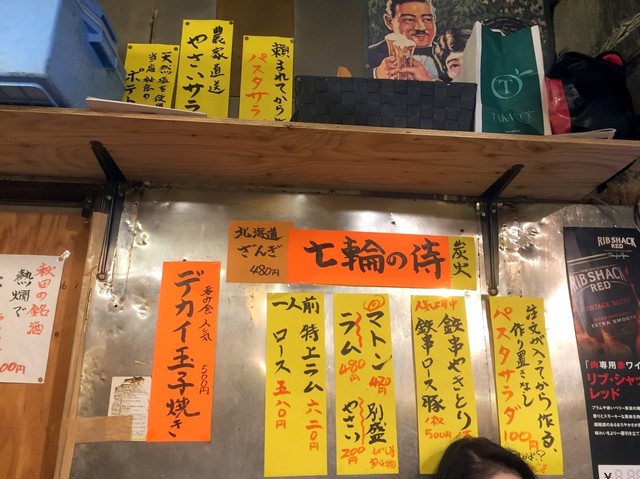 農家直送
やさいサラ
頼まれてから
パスタサラ
天然塩を使用
ポテト
TAKANO
北海道
ざんぎ
480円
七輪の侍
炭火
秋田の銘酒
熱燗で
00円
人気
500円
デカイ玉子焼き
一人前 特上ラム 六二〇円
ロース 五八〇円
マトン 420円
ラム 480円
別盛
やさい 200円
鉄串やきとり
鉄串ロース豚
500円
注文が入ってから作る、
作り置きなし
パスタサラダ
100円
RIB SHACK
RED
RIB SHACK
RED
EXTRA SMOOTH
「肉専用赤ワイ
リブ・シャ
レッド